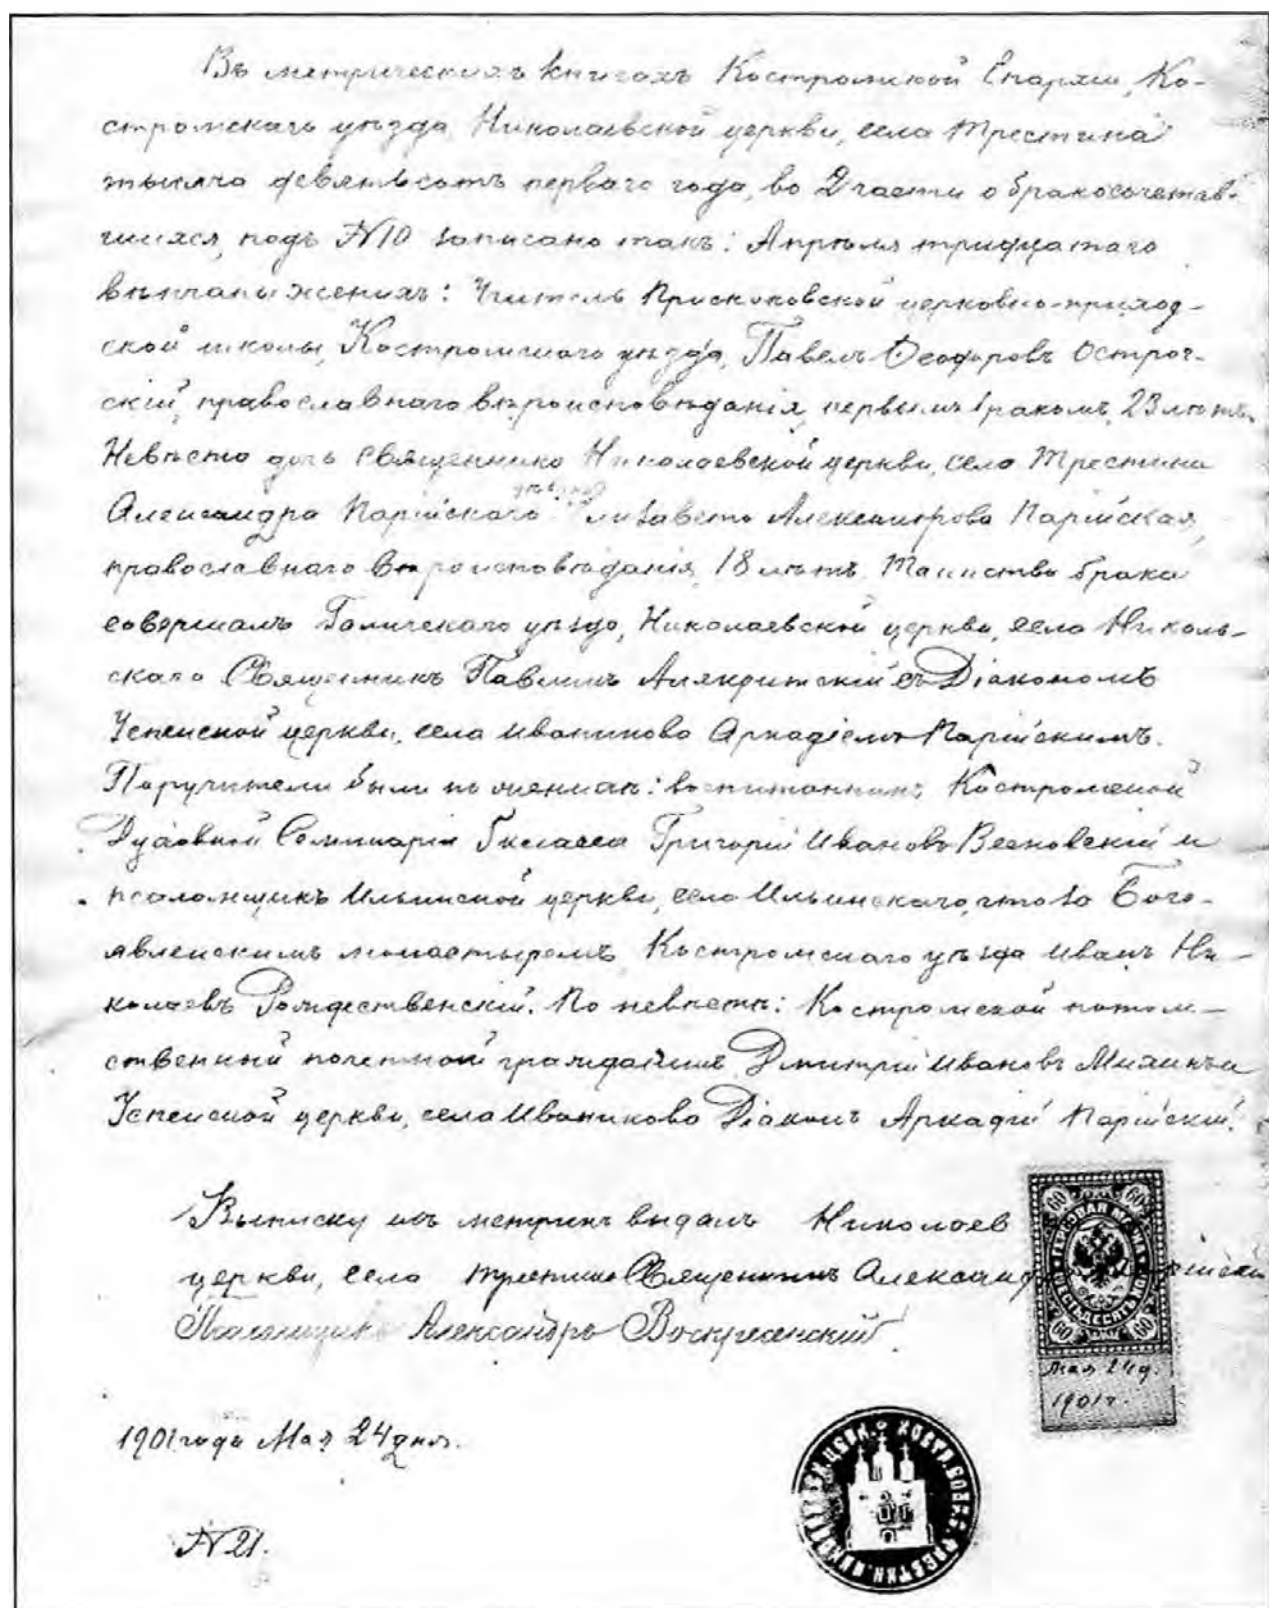 Въ метрическихъ книгахъ Костромской Епархіи, Ко-
стромскаго уѣзда, Николаевской церкви, села Трестина
тысяча девятьсотъ перваго года, во 2 части о бракосочетав-
шихся, подъ №10 записано такъ: Апрѣля тридцатаго
вѣнчаны женихъ: Учитель Прискоковской церковно-приход-
ской школы, Костромскаго уѣзда, Павелъ Ѳеодоровъ Острог-
скій, православнаго вѣроисповѣданія, первымъ бракомъ, 23 лѣтъ.
Невѣста дочь Священника Николаевской церкви, села Трестина
Александра Парійскаго дѣвица Елизавета Александрова Парійская,
православнаго вѣроисповѣданія, 18 лѣтъ. Таинство брака
совершалъ Галичскаго уѣзда, Николаевской церкви, села Николь-
скаго Священникъ Павлинъ Алякритскій съ Діакономъ
Успенской церкви, села Иваникова Аркадіемъ Парійскимъ.
Поручители были по женихѣ: воспитанникъ Костромской
Духовной Семинаріи 5 класса Григорій Ивановъ Весновскій и
псаломщикъ Ильинской церкви, села Ильинскаго, что за Бого-
явленскимъ монастыремъ, Костромскаго уѣзда Иванъ Ни-
колаевъ Рождественскій. По невѣстѣ: Костромской потом-
ственный почетной гражданинъ Дмитрій Ивановъ и
Успенской церкви, села Иваникова Діаконъ Аркадій Парійскій.
Выписку изъ метрикъ выдалъ Николаев
церкви, села Трестина Священникъ Александ
Псаломщикъ Александръ Воскресенскій.
ГЕРБОВАЯ МАРКА
ШЕСТЬДЕСЯТЪ КОП.
60 60
60 60
Мая 24 д.
1901 г.
1901 года Мая 24 дня.
№ 21.